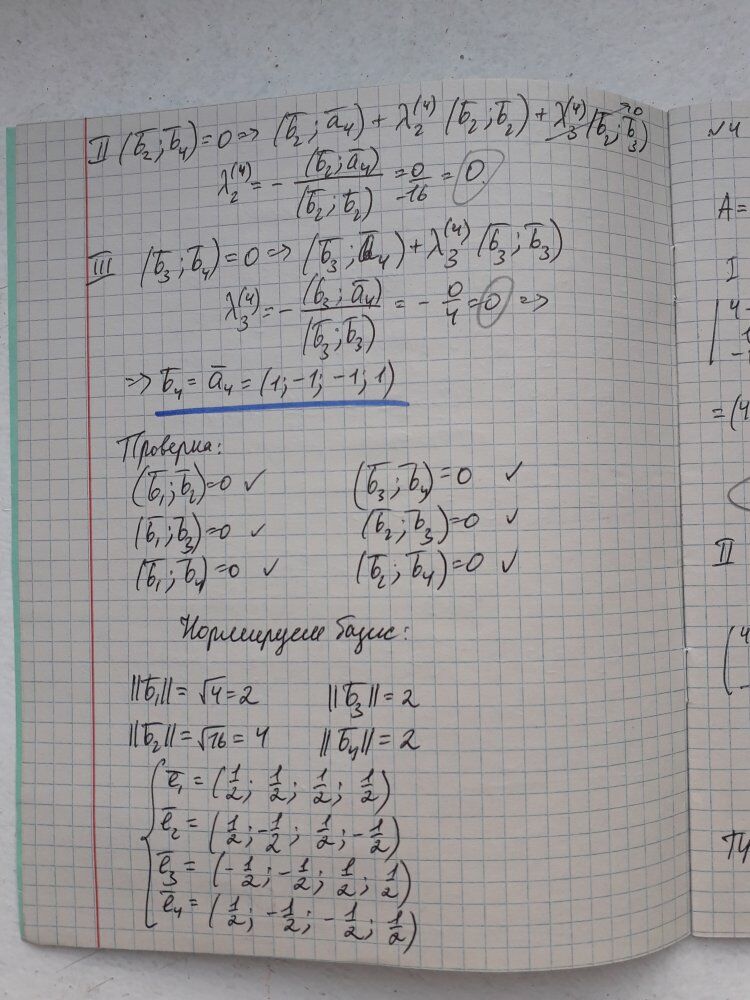 II (b̄₂; b̄₄) = 0 => (b̄₂; ā₄) + λ₂⁽⁴⁾ (b̄₂; b̄₂) + λ₃⁽⁴⁾ (b̄₂; b̄₃) →0
λ₂⁽⁴⁾ = - (b̄₂; ā₄) / (b̄₂; b̄₂) = 0 / -16 = 0
III (b̄₃; b̄₄) = 0 => (b̄₃; ā₄) + λ₃⁽⁴⁾ (b̄₃; b̄₃)
λ₃⁽⁴⁾ = - (b̄₃; ā₄) / (b̄₃; b̄₃) = - 0/4 = 0 =>
=> b̄₄ = ā₄ = (1; -1; -1; 1)
Проверка:
(b̄₁; b̄₂) = 0 ✓ (b̄₃; b̄₄) = 0 ✓
(b̄₁; b̄₃) = 0 ✓ (b̄₂; b̄₃) = 0 ✓
(b̄₁; b̄₄) = 0 ✓ (b̄₂; b̄₄) = 0 ✓
Нормируем базис:
||b̄₁|| = √4 = 2 ||b̄₃|| = 2
||b̄₂|| = √16 = 4 ||b̄₄|| = 2
ē₁ = (1/2; 1/2; 1/2; 1/2)
ē₂ = (1/2; -1/2; 1/2; -1/2)
ē₃ = (-1/2; -1/2; 1/2; 1/2)
ē₄ = (1/2; -1/2; -1/2; 1/2)
№4
A =
I
4 -
1
-
= (4
II
(4
-